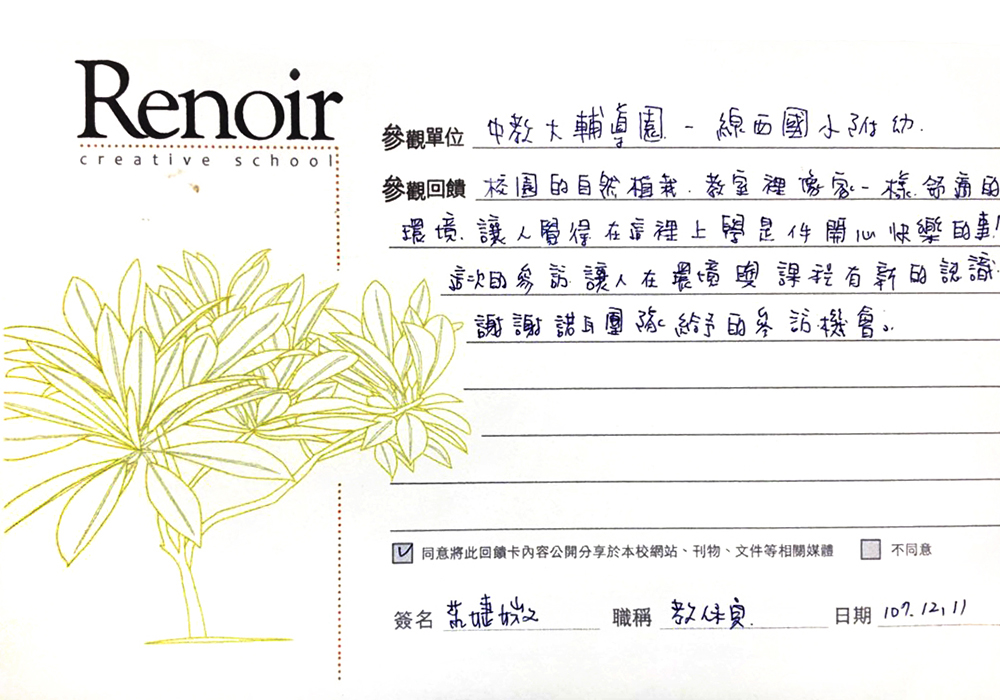 Renoir
creative school
參觀單位 中教大輔導團 - 線西國小附幼.
參觀回饋 校園的自然植栽.教室裡像家一樣.舒適的
環境.讓人覺得在這裡上學是件開心快樂的事!
這次的參訪.讓人在環境與課程有新的認識.
謝謝諾耳團隊給予的參訪機會。
同意將此回饋卡內容公開分享於本校網站、刊物、文件等相關媒體 不同意
簽名 職稱 教保員. 日期 107.12.11